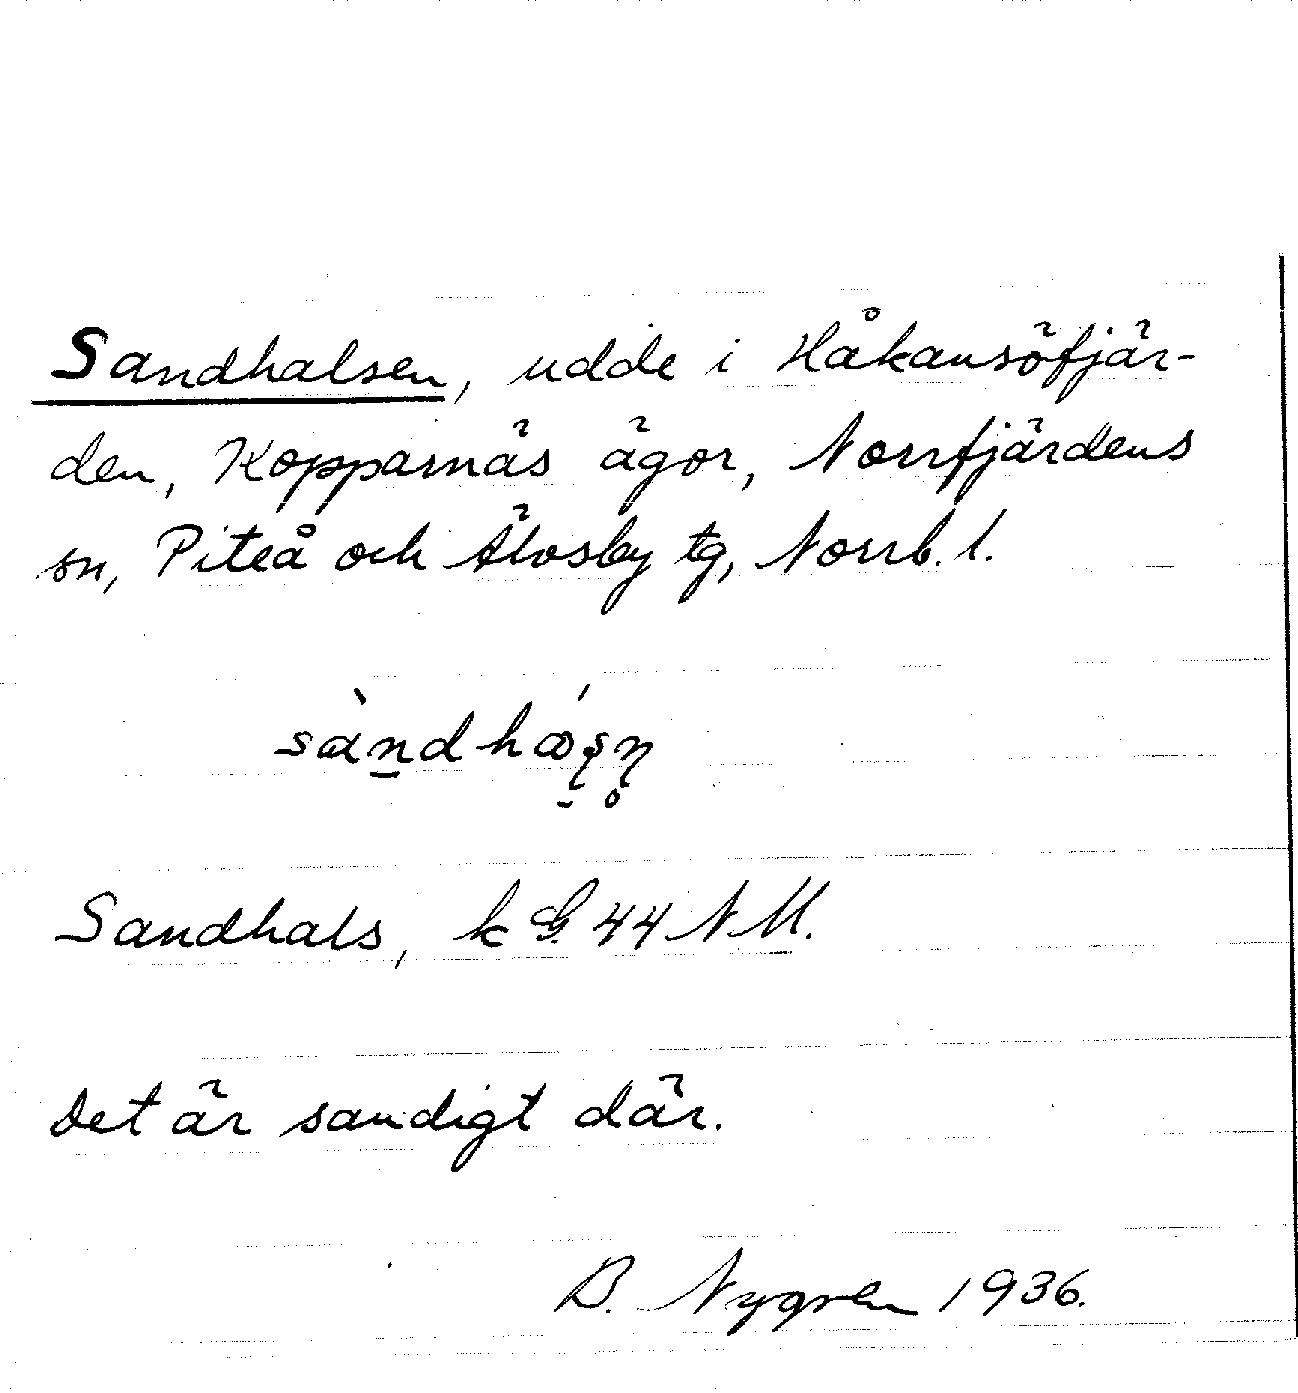 Sandhalsen, udde i Håkansöfjär-
den, Kopparnäs ägor, Norrfjärdens
sn, Piteå och Älvsby tg, Norrb. l.
Sandhals, k G. 44 NM.
Det är sandigt där.
B. Nygren 1936.